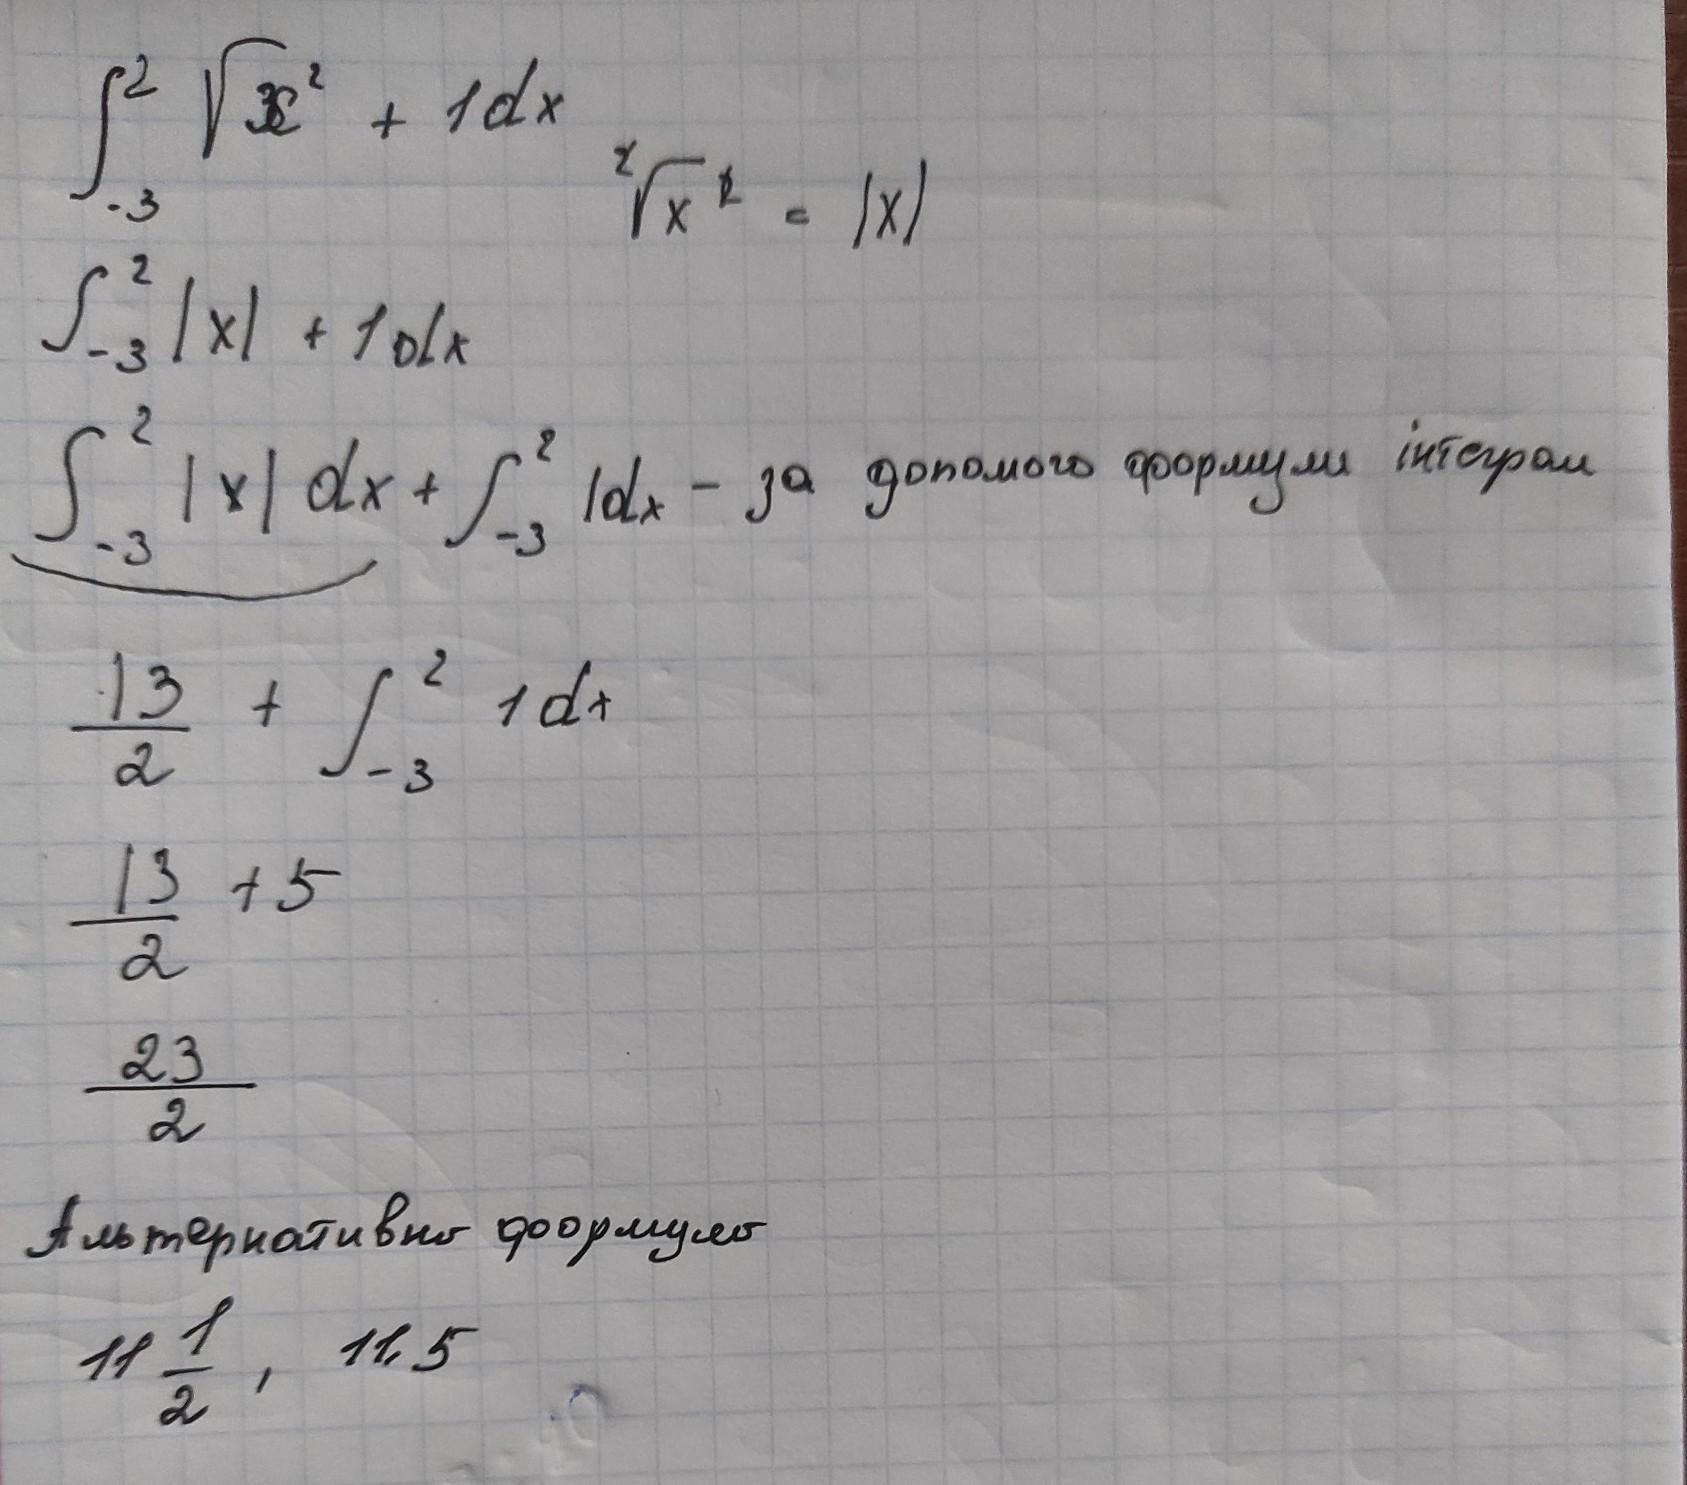 ∫₋₃² √x² + 1dx
²√x² = |x|
∫₋₃² |x| + 1dx
∫₋₃² |x| dx + ∫₋₃² 1dx - за допомого формули інтеграл
13/2 + ∫₋₃² 1dx
13/2 + 5
23/2
Альтернативно формуло
11 1/2, 11.5